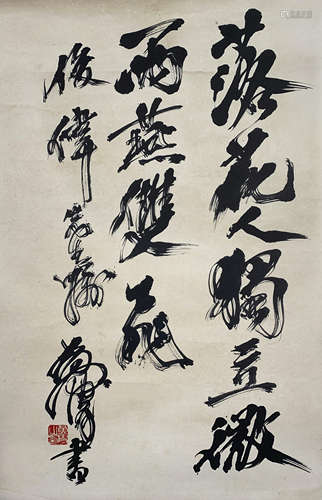 落花人獨立微
雨燕雙飛
俊偉
書